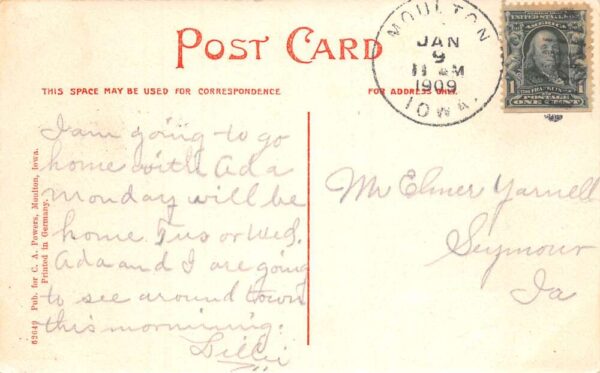 POST CARD
THIS SPACE MAY BE USED FOR CORRESPONDENCE
FOR ADDRESS ONLY.
MOULTON
JAN
9
11 AM
1909
IOWA.
UNITED STATES OF AMERICA
1 FRANKLIN 1
POSTAGE
ONE CENT
I am going to go
home with Ada
Monday will be
home Tus or Wed.
Ada and I are going
to see around town
this mornining.
Lillie
Mr Elmer Yarnell
Seymour
Ia
52649 Pub. for C. A. Powers, Moulton, Iowa.
Printed in Germany.